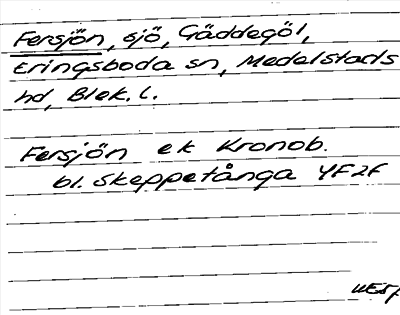 Fersjön, sjö, Gäddegöl,
Eringsboda sn, Medelstads
hd, Blek. l.
Fersjön ek Kronob.
bl. Skeppetånga 4F2f